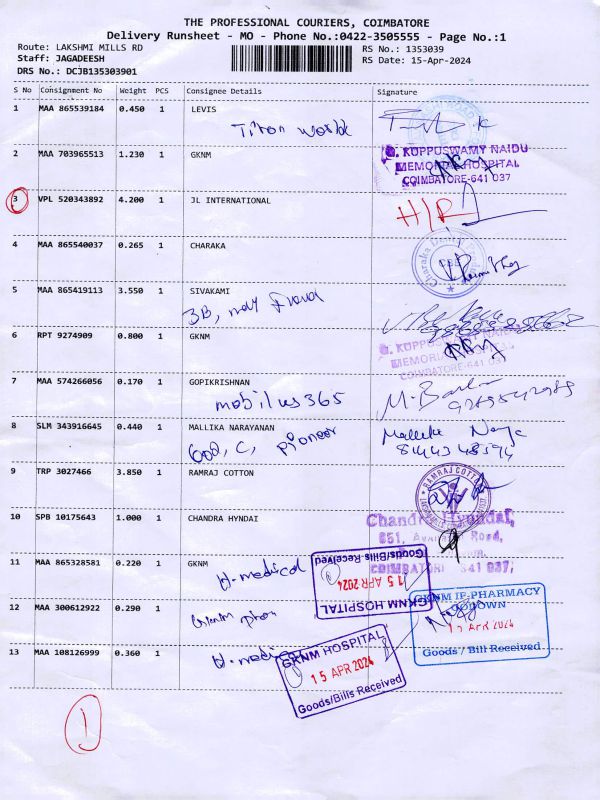 THE PROFESSIONAL COURIERS, COIMBATORE
Delivery Runsheet - MO - Phone No.:0422-3505555 - Page No.:1
Route: LAKSHMI MILLS RD
RS No.: 1353039
Staff: JAGADEESH
RS Date: 15-Apr-2024
DRS No.: DCJB135303901
S No Consignment No Weight PCS Consignee Details Signature
1 MAA 865539184 0.450 1 LEVIS
Titan world
2 MAA 703965513 1.230 1 GKNM
G. KUPPUSWAMY NAIDU
MEMORIAL HOSPITAL
COIMBATORE-641 037
3 VPL 520343892 4.200 1 JL INTERNATIONAL
4 MAA 865540037 0.265 1 CHARAKA
5 MAA 865419113 3.550 1 SIVAKAMI
3B,
6 RPT 9274909 0.800 1 GKNM
G. KUPPUSWAMY NAIDU
MEMORIAL HOSPITAL
COIMBATORE-641 037
7 MAA 574266056 0.170 1 GOPIKRISHNAN
mobilus365
8 SLM 343916645 0.440 1 MALLIKA NARAYANAN
C, pioneer
Mallika
9 TRP 3027466 3.850 1 RAMRAJ COTTON
RAMRAJ COTTON
10 SPB 10175643 1.000 1 CHANDRA HYNDAI
Chandra Hyundai,
851, Avanashi Road,
COIMBATORE 641 037.
11 MAA 865328581 0.220 1 GKNM
H-medical
Goods/Bills Received
15 APR 2024
GKNM HOSPITAL
12 MAA 300612922 0.290 1
GKNM IP-PHARMACY
GODOWN
15 APR 2024
Goods / Bill Received
13 MAA 108126999 0.360 1
H-medical
GKNM HOSPITAL
15 APR 2024
Goods/Bills Received
1